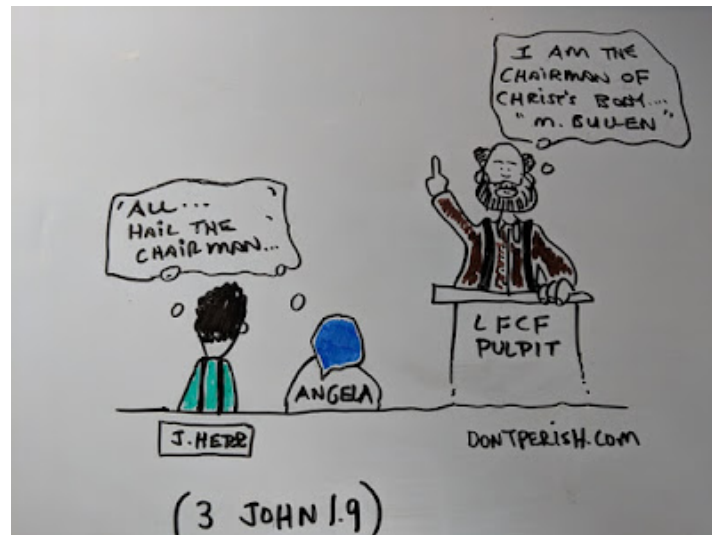 I AM THE
CHAIRMAN OF
CHRIST'S BODY...
"M. BULLEN"
"ALL...
HAIL THE
CHAIRMAN...
LFCF
PULPIT
ANGELA
J. HERR
DONTPERISH.COM
(3 JOHN 1.9)